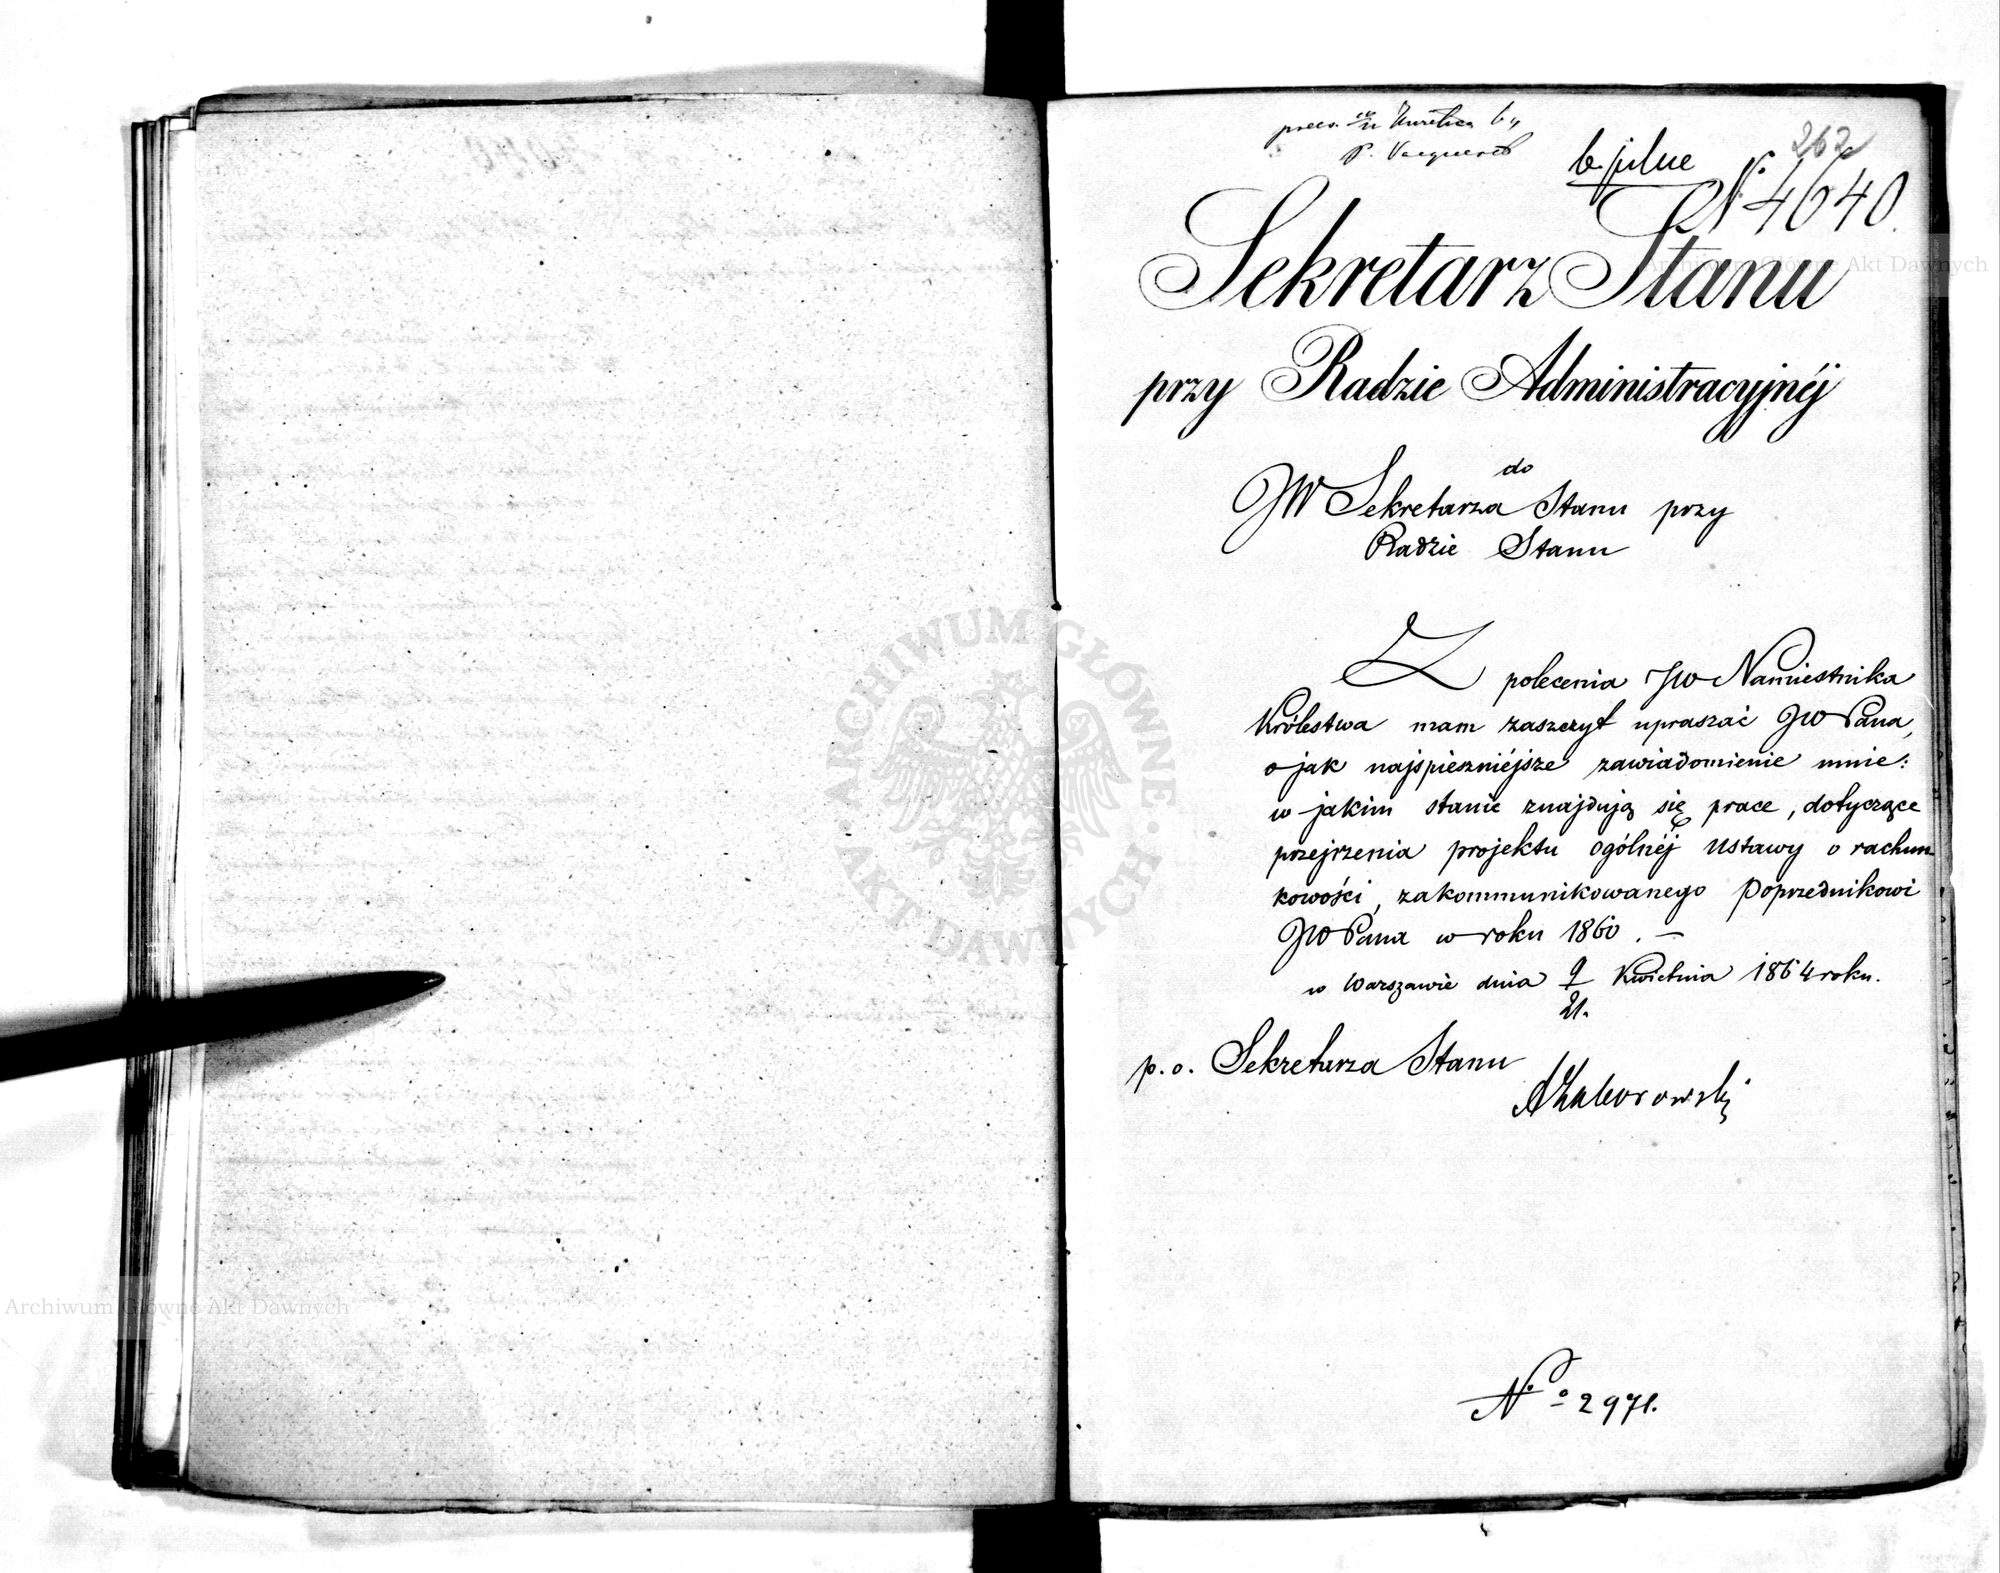 262
b. pilne
N. 4640.
Sekretarz Stanu
przy Radzie Administracyjnéj
do
JW Sekretarza Stanu przy
Radzie Stanu
Z polecenia JW Namiestnika
Królestwa mam zaszczyt upraszać JW Pana,
o jak najspieszniéjsze zawiadomienie mnie:
w jakim stanie znajdują się prace, dotyczące
przejrzenia projektu ogólnéj Ustawy o rachun-
kowości, zakommunikowanego Poprzednikowi
JW Pana w roku 1860. —
w Warszawie dnia 9/21. Kwietnia 1864 roku.
p. o. Sekretarza Stanu
AZaborowski
No 2971.
ARCHIWUM GŁÓWNE · AKT DAWNYCH ·
Archiwum Główne Akt Dawnych
Archiwum Główne Akt Dawnych